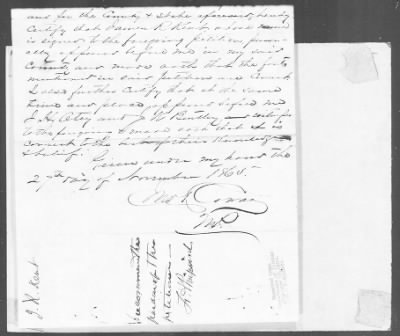 and for the County & State aforesaid, hereby
certify that James R. Kent, whose name
is signed to the foregoing petition person
ally appeared before me in my said
County and made oath that the facts
mentioned in said petition are correct
I also further certify that at the same
time and place appeared before me
J. H. Otey and J. W. Bentley and
to the foregoing & made oath that it is
correct to the best of their Knowledge
& belief. Given under my hand this
27th day of November 1865.
I recommend the
pardon of this
petitioner
F. H. Peirpoint
J. R. Kent